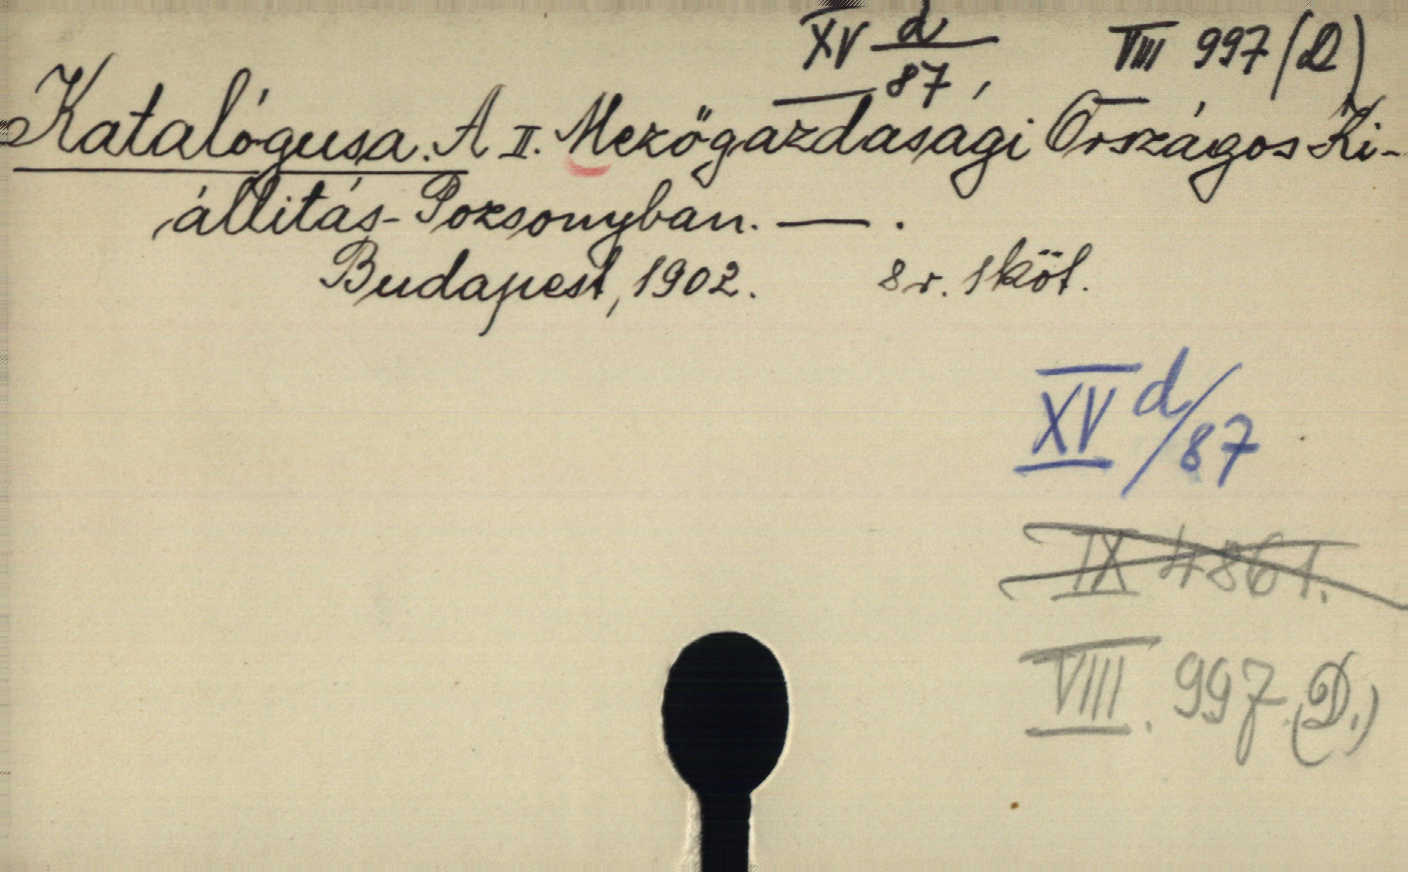 XV d/87, VIII 997 (D)
Katalógusa. A II. Mezőgazdasági Országos Ki-
állitás-Pozsonyban. — .
Budapest, 1902. 8 r. 1 köt.
XV d/87
IX 4861.
VIII. 997. (D.)